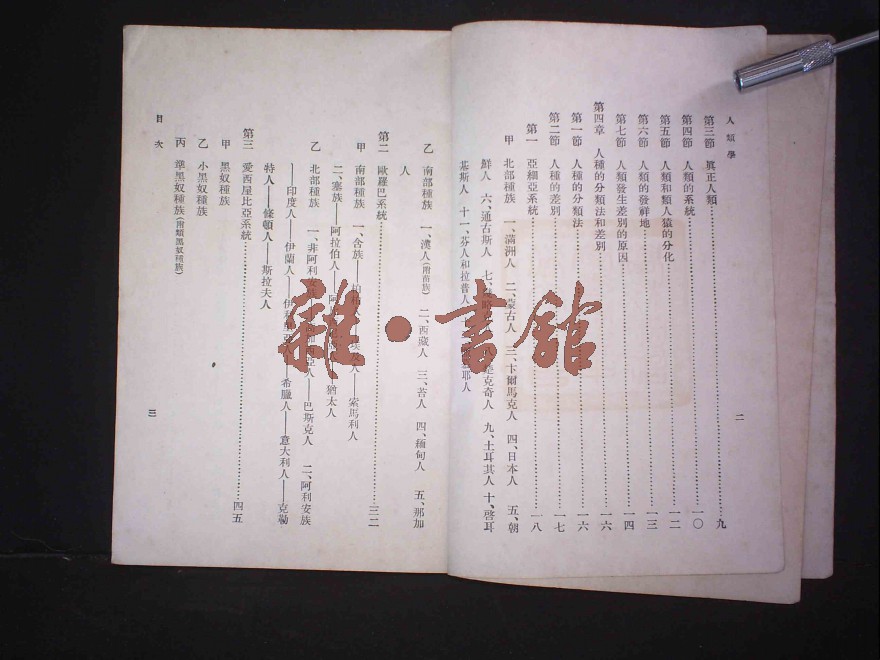 人類學
二
第三節 眞正人類……九
第四節 人類的系統……一〇
第五節 人類和類人猿的分化……一二
第六節 人類的發祥地……一三
第七節 人類發生差別的原因……一四
第四章 人種的分類法和差別……一六
第一節 人種的分類法……一六
第二節 人種的差別……一七
第一 亞細亞系統……一八
甲 北部種族 一、滿洲人 二、蒙古人 三、卡爾馬克人 四、日本人 五、朝
鮮人 六、通古斯人 七、 克奇人 九、土耳其人 十、啓耳
基斯人 十一、芬人和拉普人 耶人
乙 南部種族 一、漢人(附苗族) 二、西藏人 三、苔人 四、緬甸人 五、那加
人
第二 歐羅巴系統……三二
甲 南部種族 一、含族 人——索馬利人
二、塞族——阿拉伯人—— 猶太人
乙 北部種族 一、非阿利安 人——巴斯克人 二、阿利安族
——印度人——伊蘭人—— 人——希臘人——意大利人——克勒
特人——條頓人——斯拉夫人
第三 愛西屋比亞系統……四五
甲 黑奴種族
乙 小黑奴種族
丙 準黑奴種族(附類黑奴種族)
目次
三
雜·書館